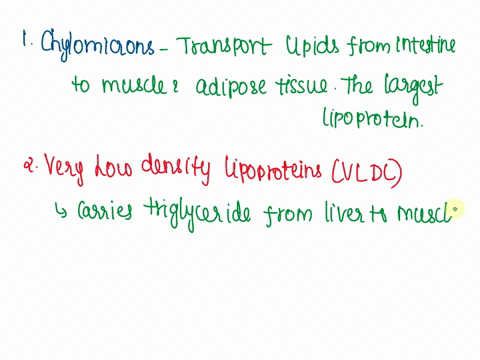 1. Chylomicrons - Transport Lipids from intestine
to muscle & adipose tissue. The largest
lipoprotein.
2. Very Low density lipoproteins (VLDC)
↳ Carries triglyceride from liver to muscl